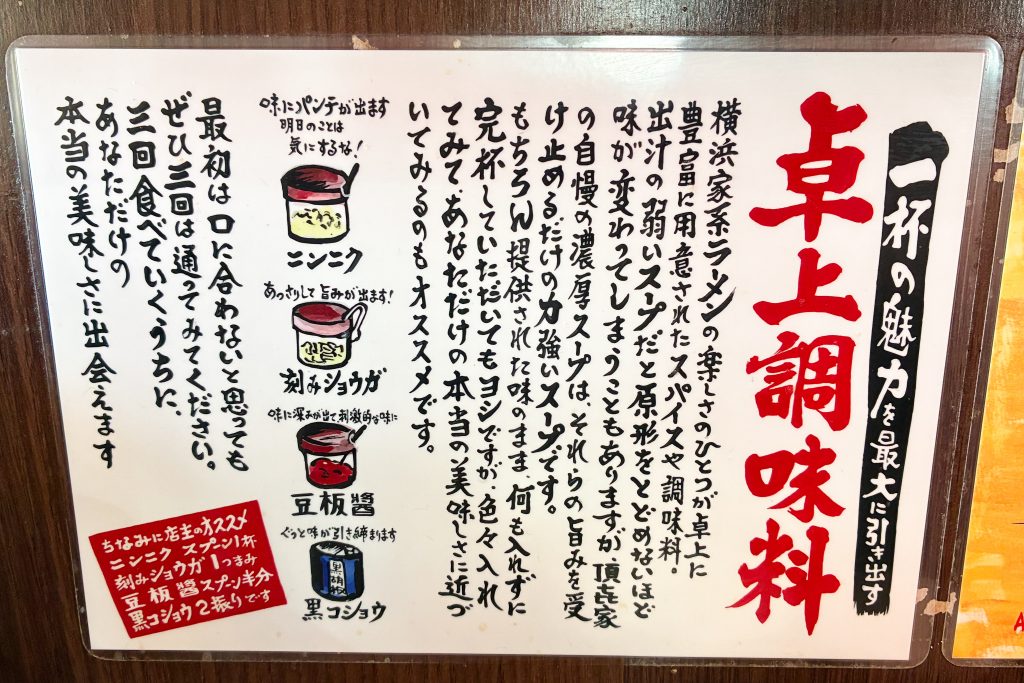 一杯の魅力を最大に引き出す
卓上調味料
横浜家系ラーメンの楽しさのひとつが卓上に
豊富に用意されたスパイスや調味料。
出汁の弱いスープだと原形をとどめないほど
味が変わってしまうこともありますが、頂㐂家
の自慢の濃厚スープは、それらの旨みを受
け止めるだけの力強いスープです。
もちろん提供された味のまま、何も入れずに
完杯していただいてもヨシですが、色々入れ
てみて、あなただけの本当の美味しさに近づ
いてみるのもオススメです。
味にパンチが出ます
明日のことは
気にするな!
ニンニク
あっさりして旨みが出ます!
刻みショウガ
味に深みが出て刺激的な味に
豆板醬
ぐっと味が引き締まります
黒胡椒
黒コショウ
最初は口に合わないと思っても
ぜひ三回は通ってみてください。
三回食べていくうちに、
あなただけの
本当の美味しさに出会えます
ちなみに店主のオススメ
ニンニク スプーン1杯
刻みショウガ1つまみ
豆板醬スプーン半分
黒コショウ2振りです